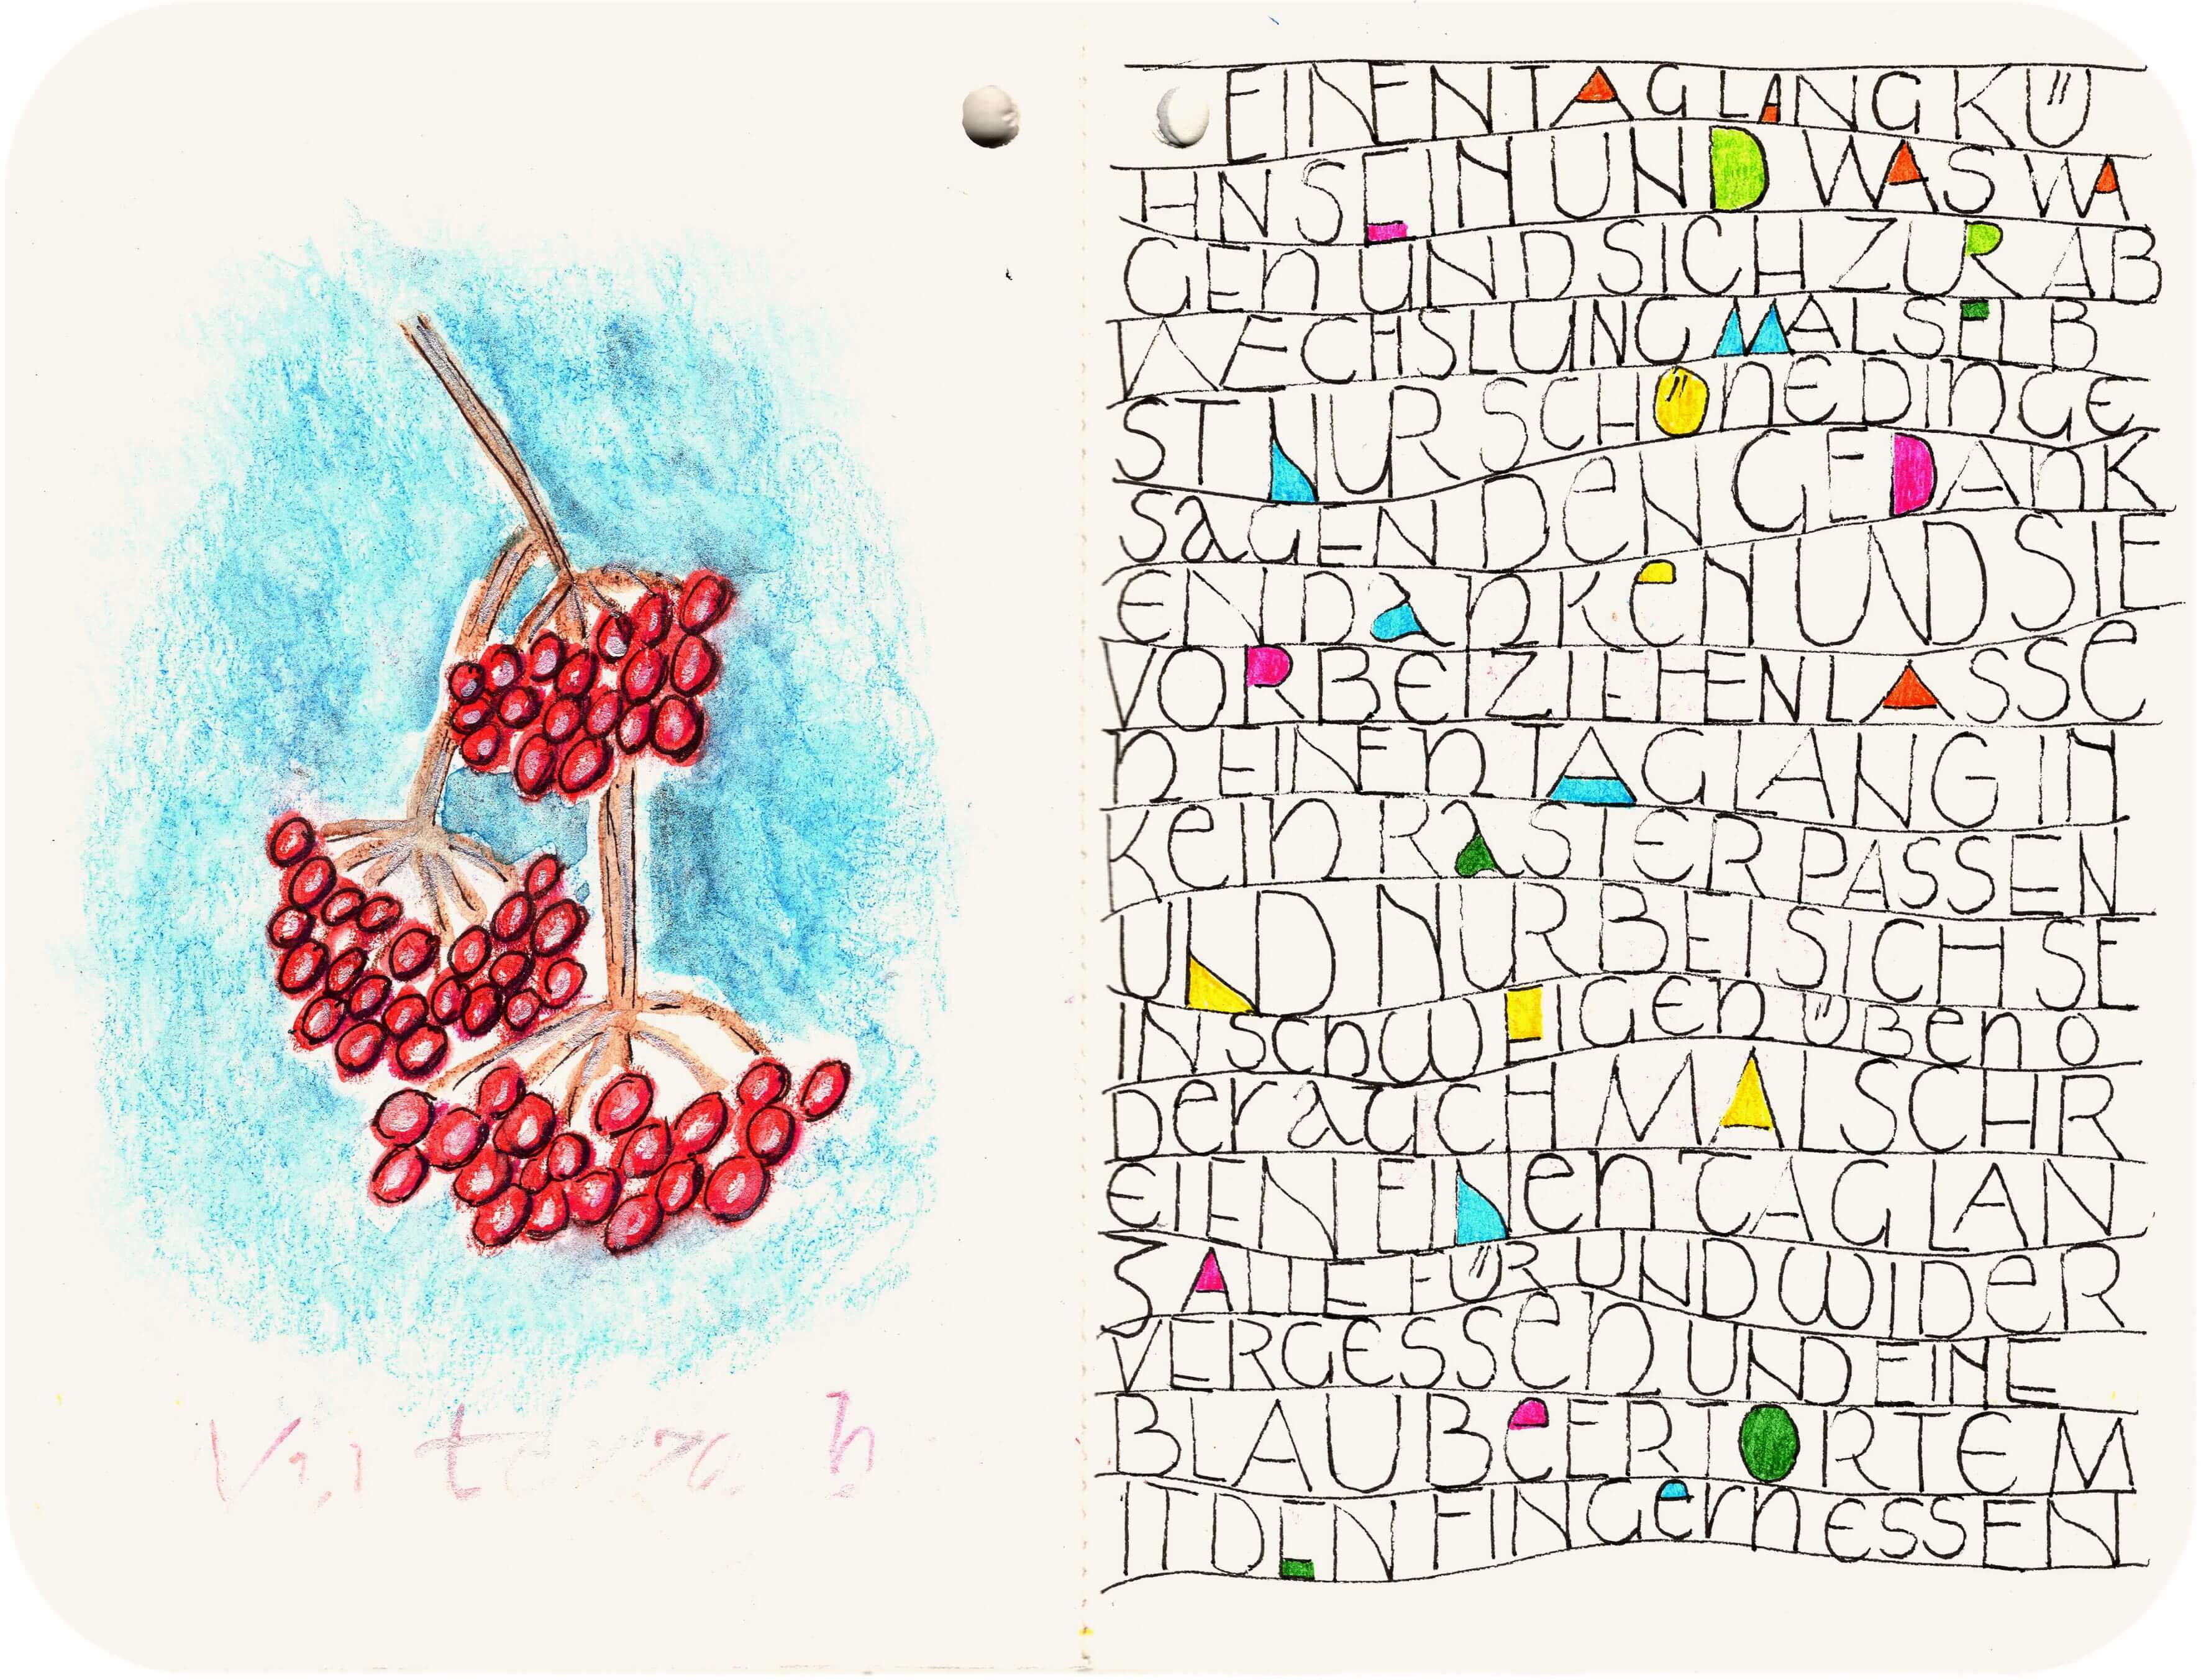 EINEN TAG LANG KÜ
HN SEIN UND WAS WA
GEN UND SICH ZUR AB
WECHSLUNG MAL SELB
ST NUR SCHÖNE DINGE
SAGEN DEN GEDANK
EN DANKEN UND SIE
VORBEIZIEHEN LASSE
N EINEN TAG LANG IN
KEIN RASTER PASSEN
UND NUR BEI SICH SE
IN SCHWEIGEN ÜBEN O
DER AUCH MAL SCHR
EIEN EINEN TAG LAN
G ALLE FÜR UND WIDER
VERGESSEN UND EINE
BLAUBEERTORTE M
IT DEN FINGERN ESSEN